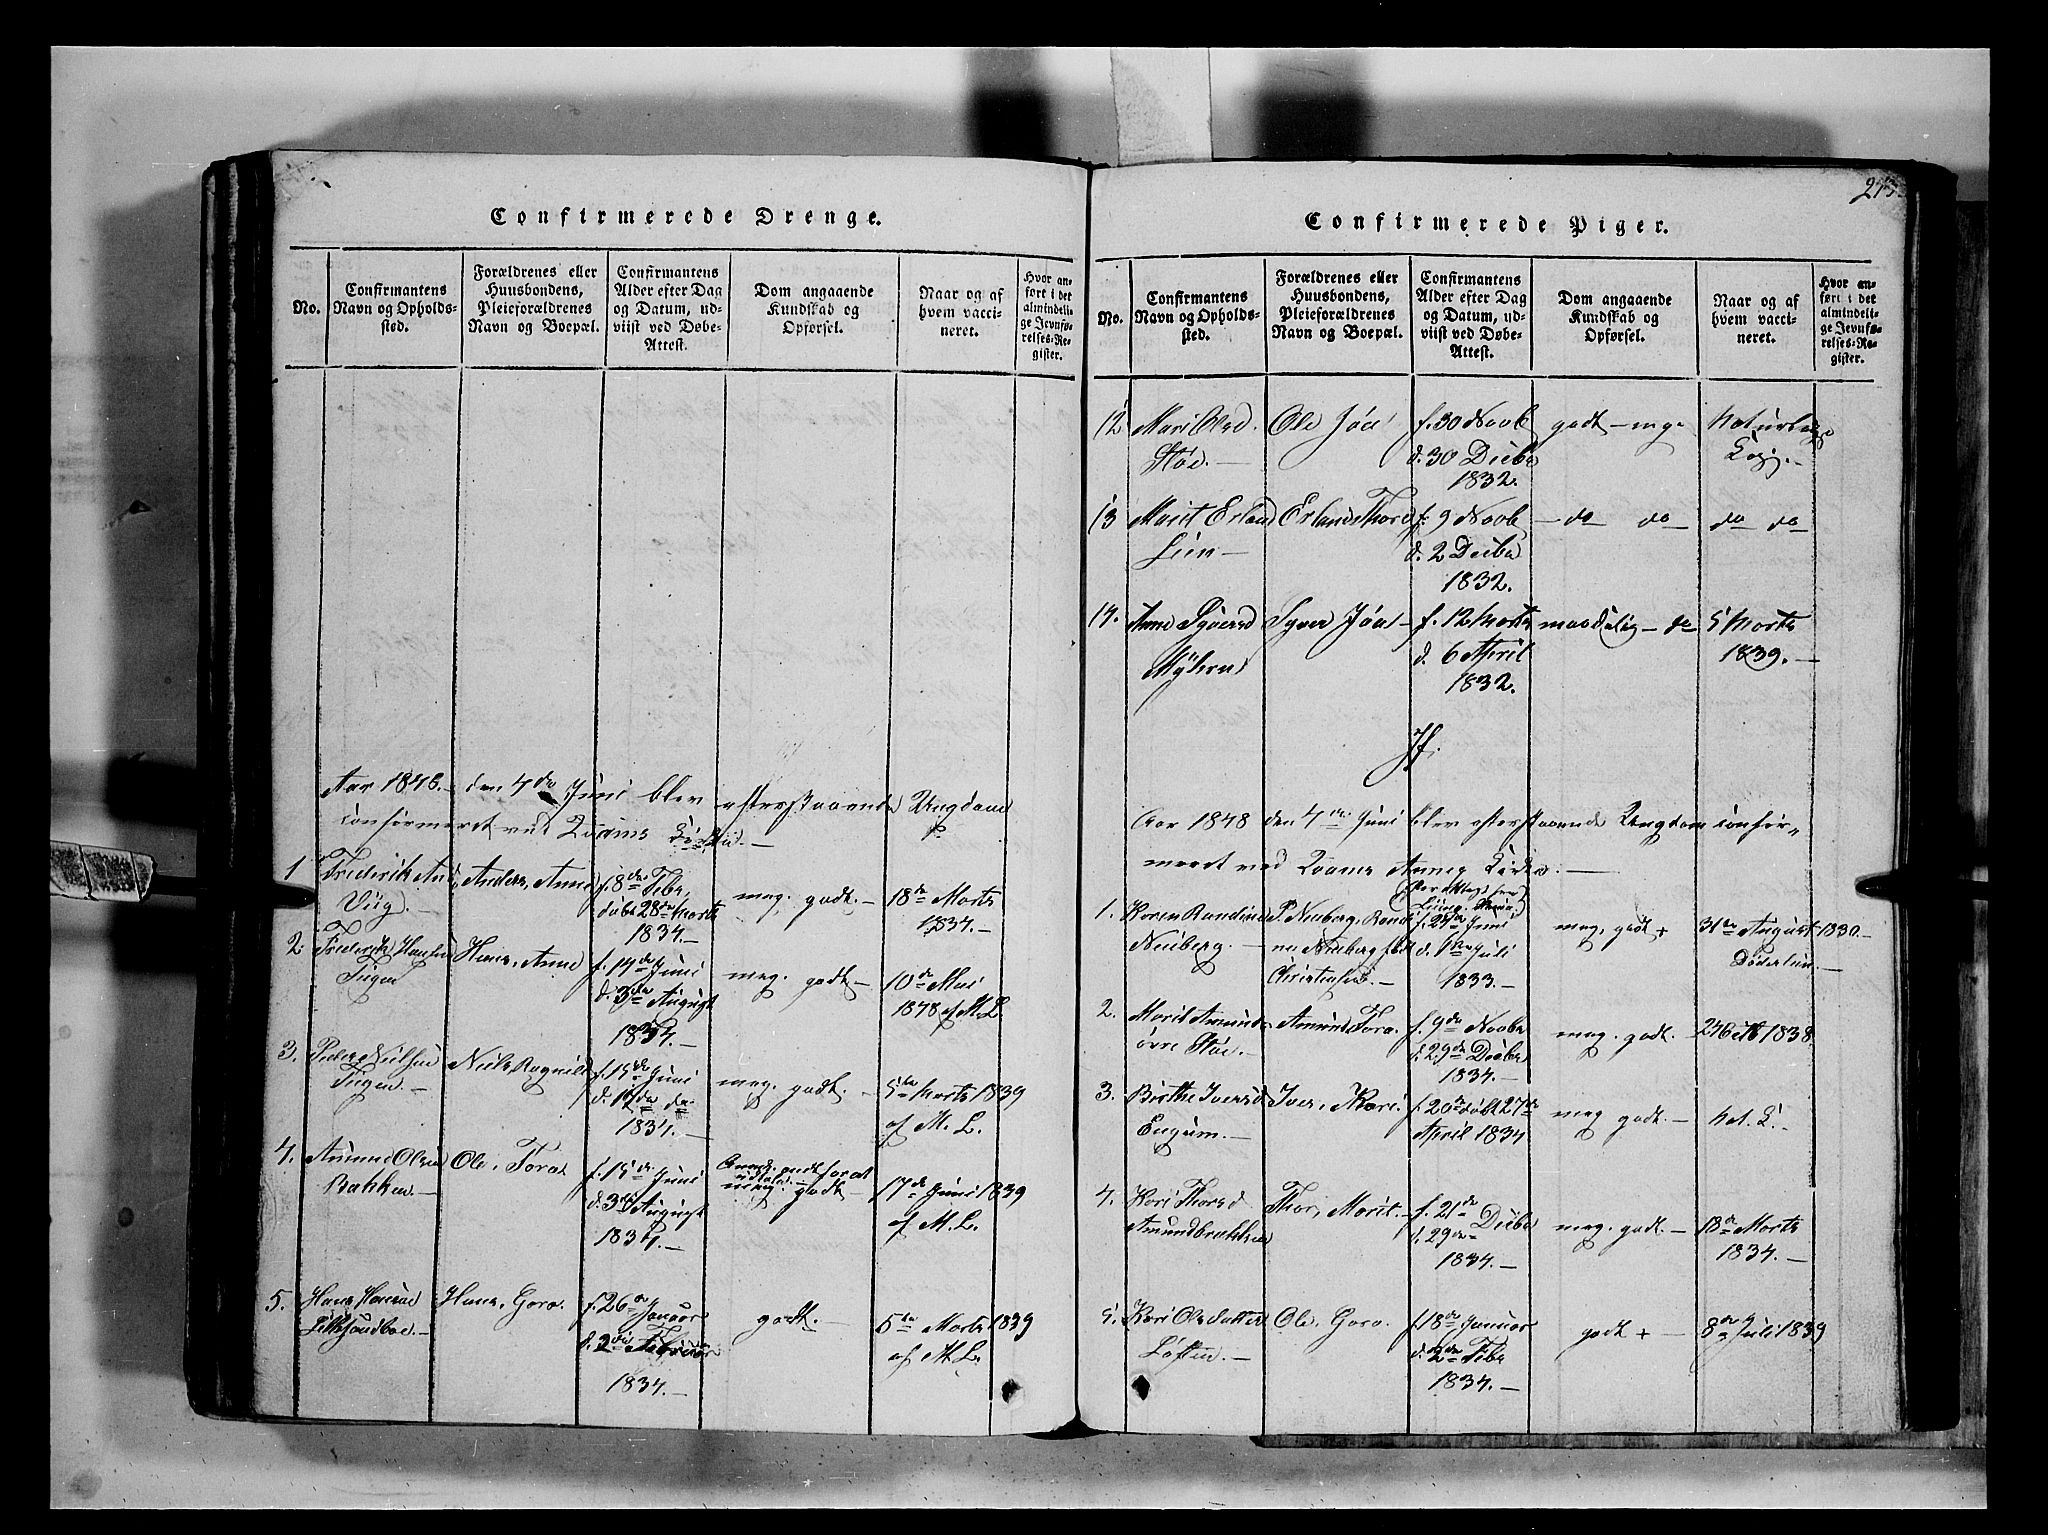 Confirmerede Drenge.
No.
Confirmantens
Navn og Opholds-
sted.
Forældrenes eller
Huusbondens,
Pleieforældrenes
Navn og Boepæl.
Confirmantens
Alder efter Dag
og Datum, ud-
viist ved Døbe-
Attest.
Dom angaaende
Kundskab og
Opførsel.
Naar og af
hvem vacci-
neret.
Hvor an-
ført i det
almindeli-
ge Jevnfø-
relses-Re-
gister.
Aar 1848. den 4de Juni blev efterstaaende Ungdom
confirmeret ved
1
Frederik And.
Viig.
Anders, Anne
f. 8de Febr.
døbt 28de Marts
1834.
meg. godt.
18de Marts
1834.
2
Frederik Hansen
Hans, Anne
f. 14de Juni
d. 3de August
1834.
meg. godt
10de Mai
1848 af M. L.
3.
Peder Nielsen
Niels, Ragnild
f. 15de Juni
d. 17de do
1834.
meg. godt.
5te Marts 1839
af M. L.
4.
Amund Olsen
Bakken
Ole, Tora
f. 15de Juni
d. 3de August
1834.
godt
17de Juni 1839
af M. L.
5.
Hans Hansen
Hans, Goro.
f. 26de Januar
d. 2den Februar
1834.
godt.
5te Marts 1839
af M. L.
Confirmerede Piger.
No.
Confirmantens
Navn og Opholds-
sted.
Forældrenes eller
Huusbondens,
Pleieforældrenes
Navn og Boepæl.
Confirmantens
Alder efter Dag
og Datum, ud-
viist ved Døbe-
Attest.
Dom angaaende
Kundskab og
Opførsel.
Naar og af
hvem vacci-
neret.
Hvor an-
ført i det
almindeli-
ge Jevnfø-
relses-Re-
gister.
12
Mari Olsd.
Støe.
Ole Joa
f. 30 Novb
d. 30 Decbr
1832.
godt
Naturlige
Kop.
13
Marit Erland
Lien
Erland Thor
f. 9 Novb
d. 2 Decbr
1832.
do do
do do
14.
Anne Syversd
Syver Joa
f. 12 Marts
d. 6 April
1832.
maadelig do
5 Marts
1839.
Aar 1848 den 4de Juni blev efterstaaende Ungdom confir-
meret ved Qvams Annex Kirke.
1.
Karen Randine
Neuberg.
P. Neuberg, Randi
ne Neuberg født
Christensen.
f. 24de Juni
d. 1ste Juli
1833.
meg. godt +
31te August 1830.
2.
Marit Amunds
øvre Støe.
Amund, Tora.
f. 9de Novbr
d. 29de Decbr
1834.
meg. godt.
24 Octb 1838.
3.
Birthe Iversd
Engum.
Iver, Kari.
f. 20de døbt 27de
April 1834
meg godt.
nat. K.
4.
Kari Thorsd
Amundbakken
Thor, Marit.
f. 21de Decbr
d. 29de
1834.
meg. godt.
18de Marts
1834.
5.
Kari Olsdatter
Løften.
Ole, Goro.
f. 18de Januar
d. 2de Febr
1834.
godt +
8de Juli 1839